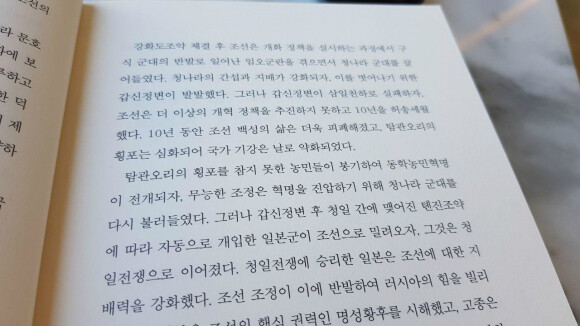 조선의
강화도조약 체결 후 조선은 개화 정책을 실시하는 과정에서 구
라 문호
식 군대의 반발로 일어난 임오군란을 겪으면서 청나라 군대를 끌
화에 보
어들였다. 청나라의 간섭과 지배가 강화되자, 이를 벗어나기 위한
갑신정변이 발발했다. 그러나 갑신정변이 삼일천하로 실패하자,
조선은 더 이상의 개혁 정책을 추진하지 못하고 10년을 허송세월
한 덕
했다. 10년 동안 조선 백성의 삶은 더욱 피폐해졌고, 탐관오리의
제
횡포는 심화되어 국가 기강은 날로 약화되었다.
탐관오리의 횡포를 참지 못한 농민들이 봉기하여 동학농민혁명
이 전개되자, 무능한 조정은 혁명을 진압하기 위해 청나라 군대를
다시 불러들였다. 그러나 갑신정변 후 청일 간에 맺어진 톈진조약
에 따라 자동으로 개입한 일본군이 조선으로 밀려오자, 그것은 청
일전쟁으로 이어졌다. 청일전쟁에 승리한 일본은 조선에 대한 지
배력을 강화했다. 조선 조정이 이에 반발하여 러시아의 힘을 빌리
조선의 핵심 권력인 명성황후를 시해했고, 고종은